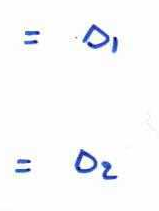 = D₁
= D₂